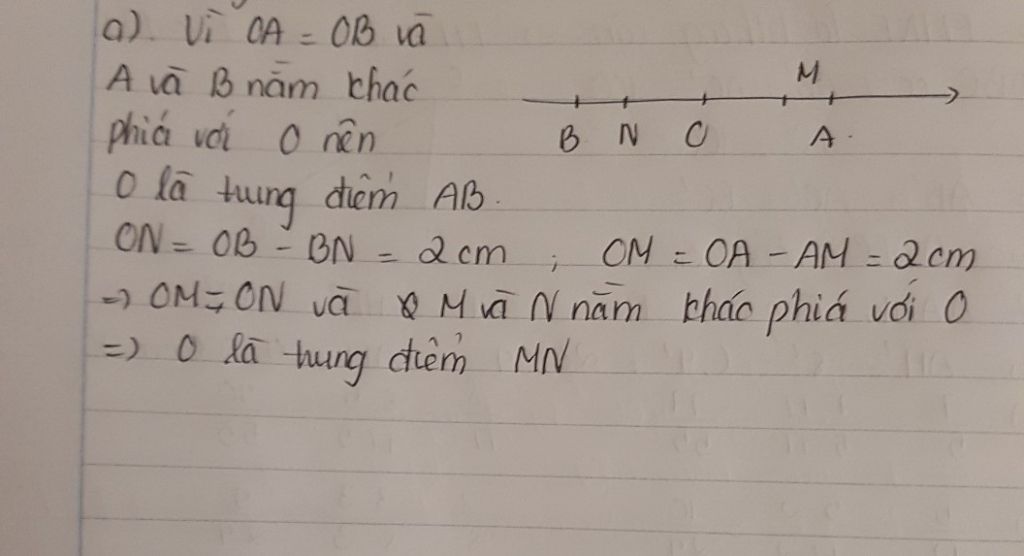 a). Vì OA = OB và
A và B nằm khác
phiá với O nên
O là trung điểm AB.
M
B N O A.
ON = OB - BN = 2cm ; OM = OA - AM = 2cm
=> OM = ON và M và N nằm khác phiá với O
=> O là trung điểm MN